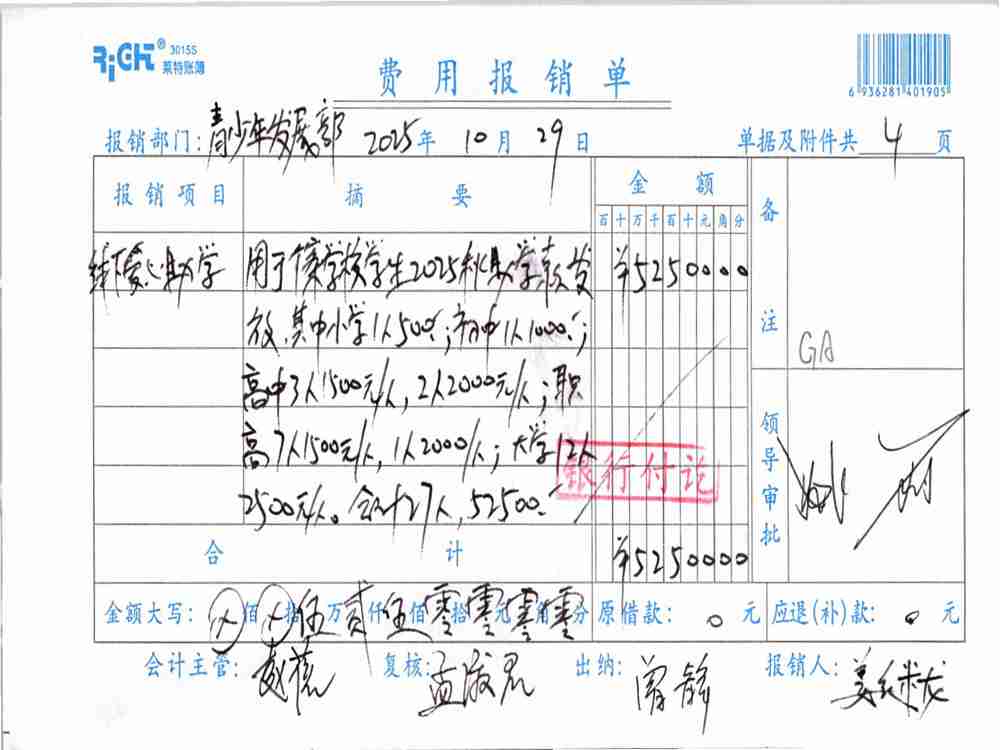 RiCHT® 3015S
莱特账簿
费用报销单
6 936281 401905
报销部门: 青少年发展部 2025年 10月 29日 单据及附件共 4 页
报销项目 摘要 金额 备注
百十万千百十元角分
助学 用于 学校学生2025秋助学款发 ¥5250000
放,其中小学1人500元;初中1人1000元;
GA
高中3人1500元/人,2人2000元/人;职
领导审批
高7人1500元/人,1人2000/人;大学12人
银行付讫
2500元/人。合计27人,52500元
合计 ¥5250000
金额大写: ⊗佰⊗拾伍万贰仟伍佰零拾零元零角零分 原借款: 0 元 应退(补)款: 0 元
会计主管: 复核: 孟淑君 出纳: 曾锋 报销人: 姜